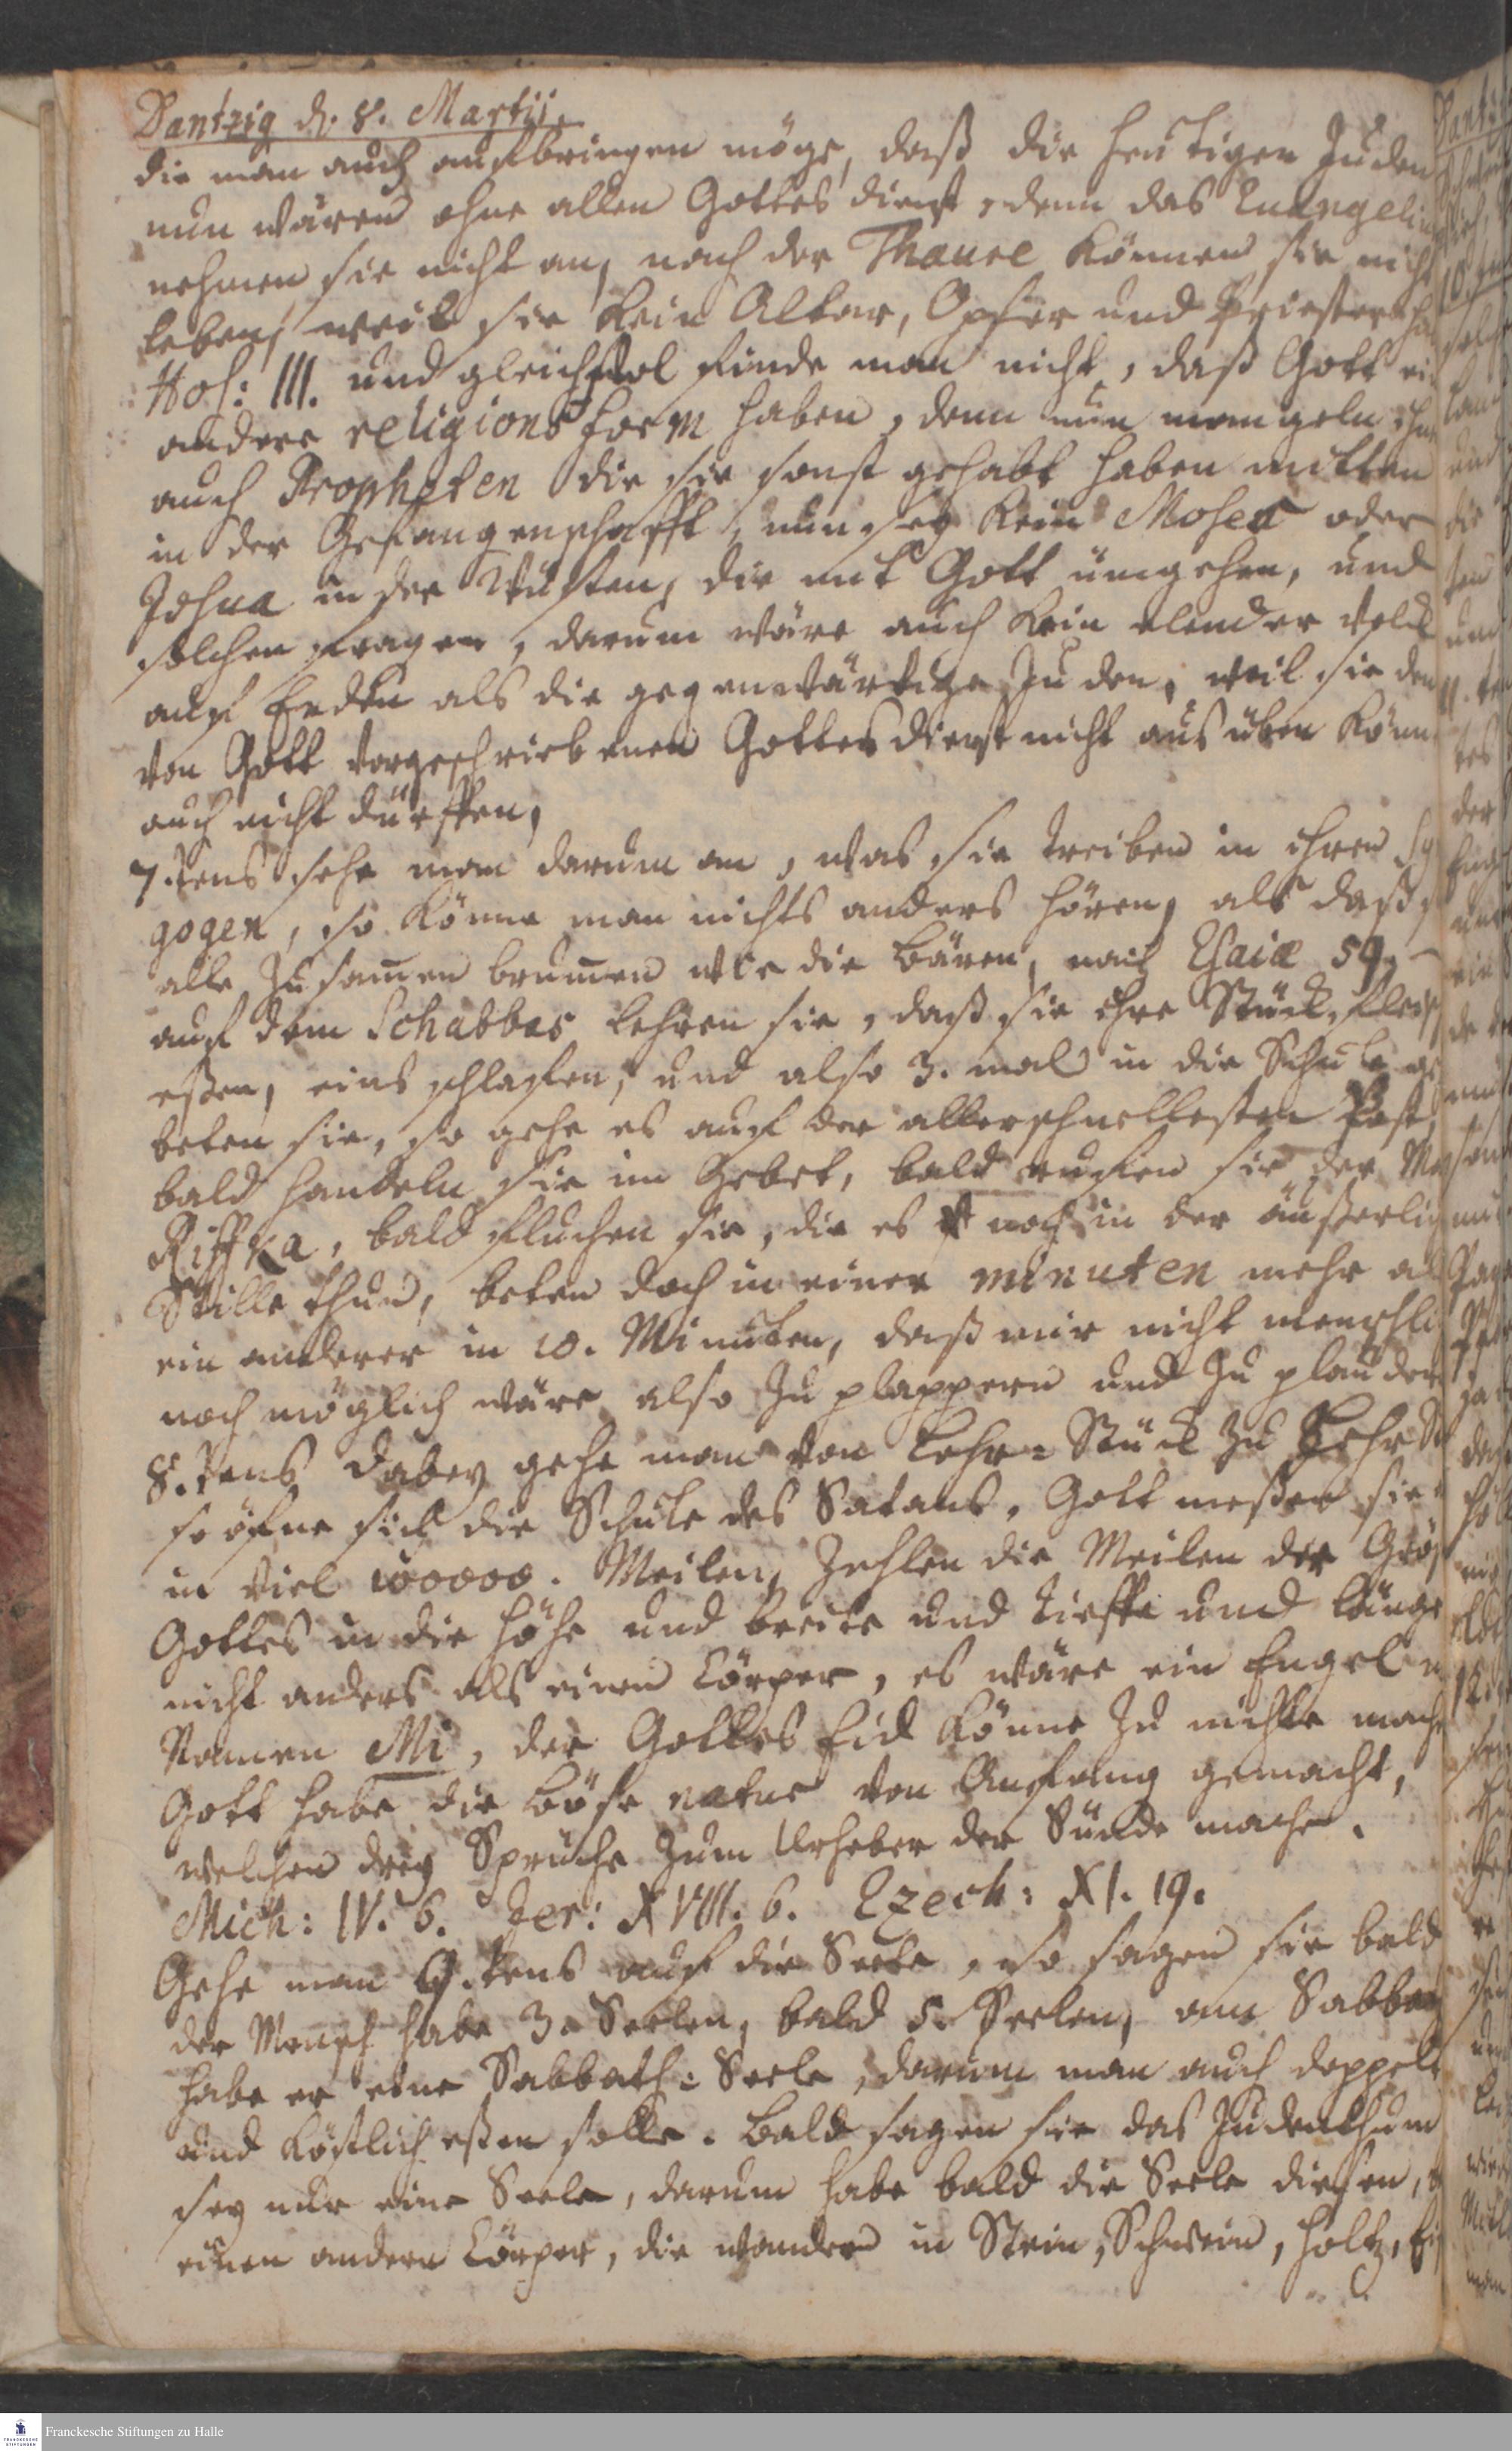 Dantzig d. 8. Martii.
die man auch aufbringen möge, daß die heutigen Juden
nun wären ohne allen Gottes dienst, denn das Euangeli
nehmen sie nicht an, nach der Thaure können sie nicht
leben, weil sie kein Altar, Opfer und Priester ha
Hos: III. und gleichwol finde man nicht, daß Gott ei
andere religions form haben, denn nun mangeln ihn
auch Propheten die sie sonst gehabt haben mitten
in der Gefangenschafft, nun sey kein Moses oder
Josua in der Wüsten, die mit Gott umgehen, und
solchen fragen, darum wäre auch kein elender Volck
auf Erden als die gegenwärtige Juden, weil sie den
von Gott vorgeschriebenen Gottesdienst nicht ausüben könn
auch nicht dürffen,
7.tens sehe man darum an, was sie treiben in ihren Sy
gogen, so könne man nichts anders hören, als daß
alle zusam̅en brum̅en wie die Bären, nach Esaiæ 59.
auf dem Schabbas lehren sie, daß sie ihre Stück fleisch
eßen, eins schlafen, und also 3. mal in die Schule ge
beten sie, so gehe es auf der allerschnellesten Post,
bald handeln sie im Gebet, bald ruffen sie der M
Riffka, bald fluchen sie, die es noch in der äußerlich
Stille thun, beten doch in einer minuten mehr als
ein anderer in 10. Minuten, daß mir nicht menschli
noch möglich wäre also zu plappern und zu plaudern
8.tens dabey gehe man von Lehr-Stück zu Lehr St
so öfne sich die Schule des Satans, Gott meßen sie
in viel 100000. Meilen, zehlen die Meilen der Größ
Gottes in die Höhe und breite und tieffe und länge
nicht anders als einen Cörper, es wäre ein Engel
Namen Mi, der Gottes Eid könne zu nichte mache
Gott habe die böse natur von Anfang gemacht,
welchen drey Sprüche zum Urheber der Sünde machen.
Mich: IV. 6. Jer: XVIII. 6. Ezech: XI. 19.
Gehe man 9.tens auf die Seele, so sagen sie bald
der Mensch habe 3. Seelen, bald 5. Seelen, am Sabbath
habe er eine Sabbaths-Seele, darum man auch doppelt
und köstlich eßen solle. Bald sagen sie das Judenthum
sey nur eine Seele, darum habe bald die Seele diesen,
einen andern Cörper, die wandern in Stein, Schwein, Holtz,
Franckesche Stiftungen zu Halle